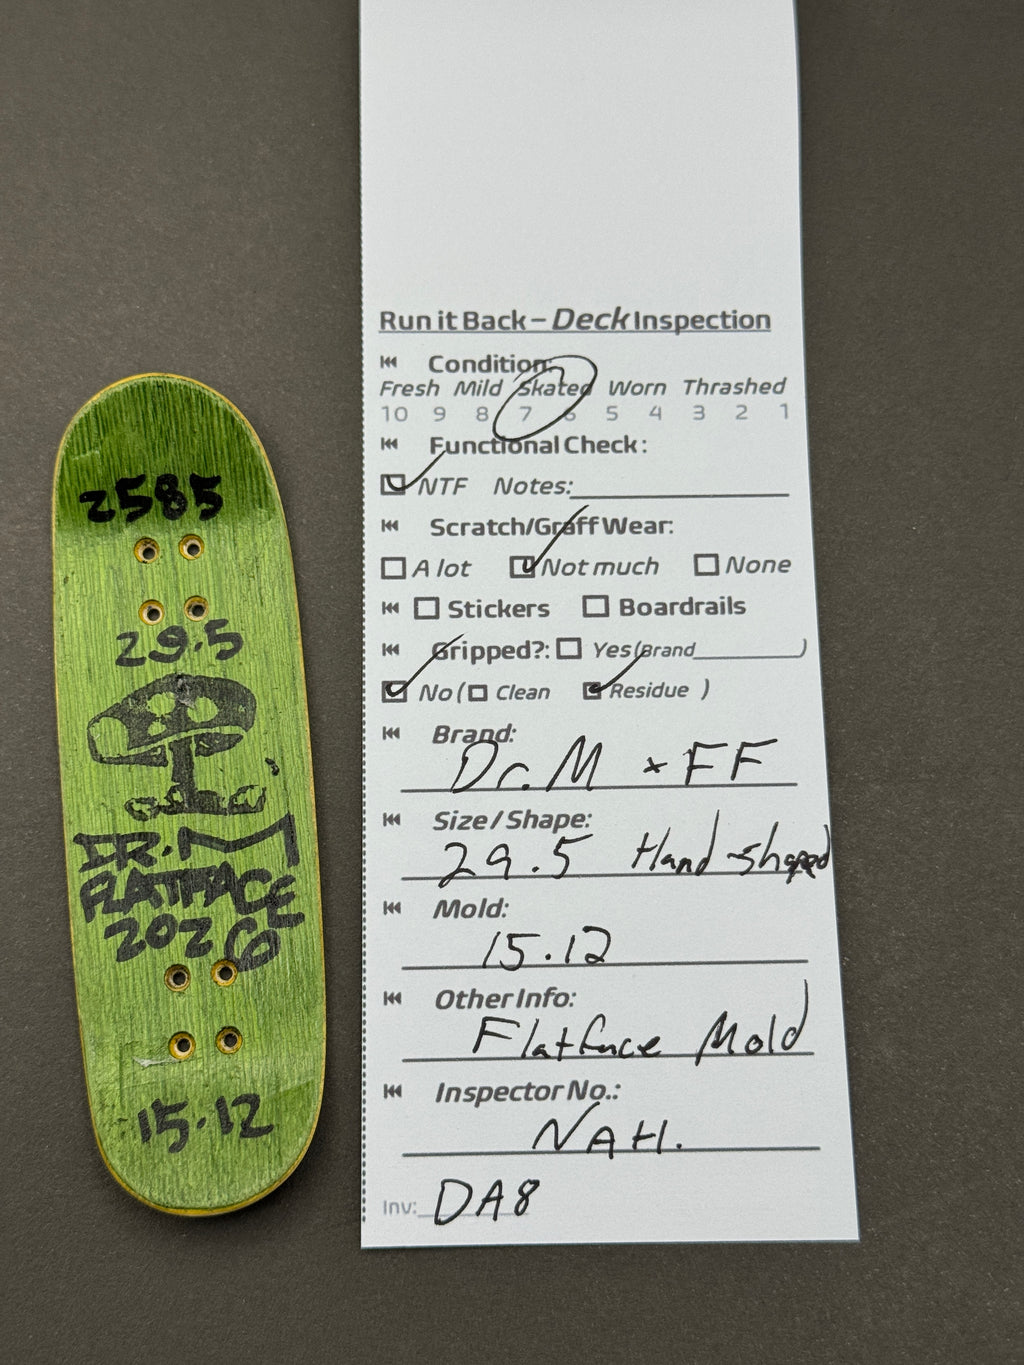 2585
29.5
DR.M
FLATFACE
2026
15.12
Run it Back – Deck Inspection
Condition:
Fresh Mild Skated Worn Thrashed
10 9 8 7 6 5 4 3 2 1
Functional Check:
NTF Notes:
Scratch/Graff Wear:
A lot Not much None
Stickers Boardrails
Gripped?: Yes (Brand )
No ( Clean Residue )
Brand:
Dr. M x FF
Size / Shape:
29.5 Hand-shaped
Mold:
15.12
Other Info:
Flatface Mold
Inspector No.:
NAH.
Inv: DA8